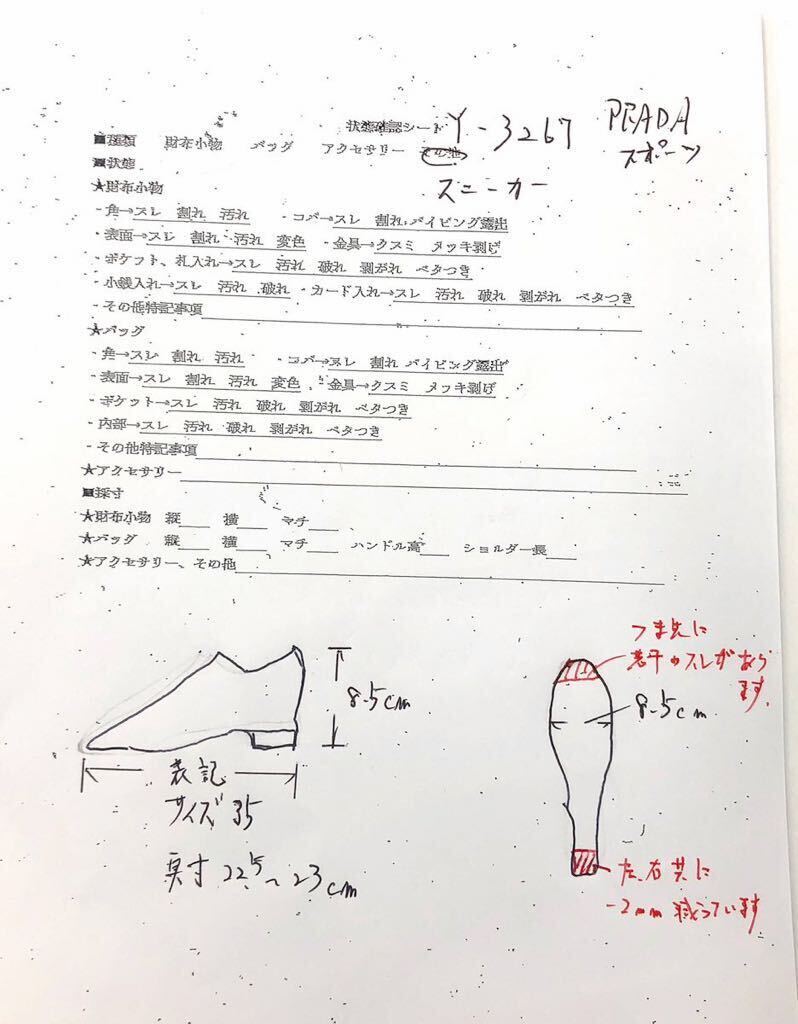 状態確認シート Y-3267 PRADA
■種類 財布小物 バッグ アクセサリー その他 スポーツ
■状態 スニーカー
★財布小物
・角→スレ 割れ 汚れ ・コバ→スレ 割れ パイピング露出
・表面→スレ 割れ 汚れ 変色 ・金具→クスミ メッキ剥げ
・ポケット、札入れ→スレ 汚れ 破れ 剥がれ ベタつき
・小銭入れ→スレ 汚れ 破れ ・カード入れ→スレ 汚れ 破れ 剥がれ ベタつき
・その他特記事項
★バッグ
・角→スレ 割れ 汚れ ・コバ→スレ 割れ パイピング露出
・表面→スレ 割れ 汚れ 変色 ・金具→クスミ メッキ剥げ
・ポケット→スレ 汚れ 破れ 剥がれ ベタつき
・内部→スレ 汚れ 破れ 剥がれ ベタつき
・その他特記事項
★アクセサリー
■採寸
★財布小物 縦 横 マチ
★バッグ 縦 横 マチ ハンドル高 ショルダー長
★アクセサリー、その他
8.5cm
表記
サイズ 35
実寸 22.5〜23cm
つま先に
若干のスレがあり
ます。
8.5cm
左、右共に
-2mm 減っています